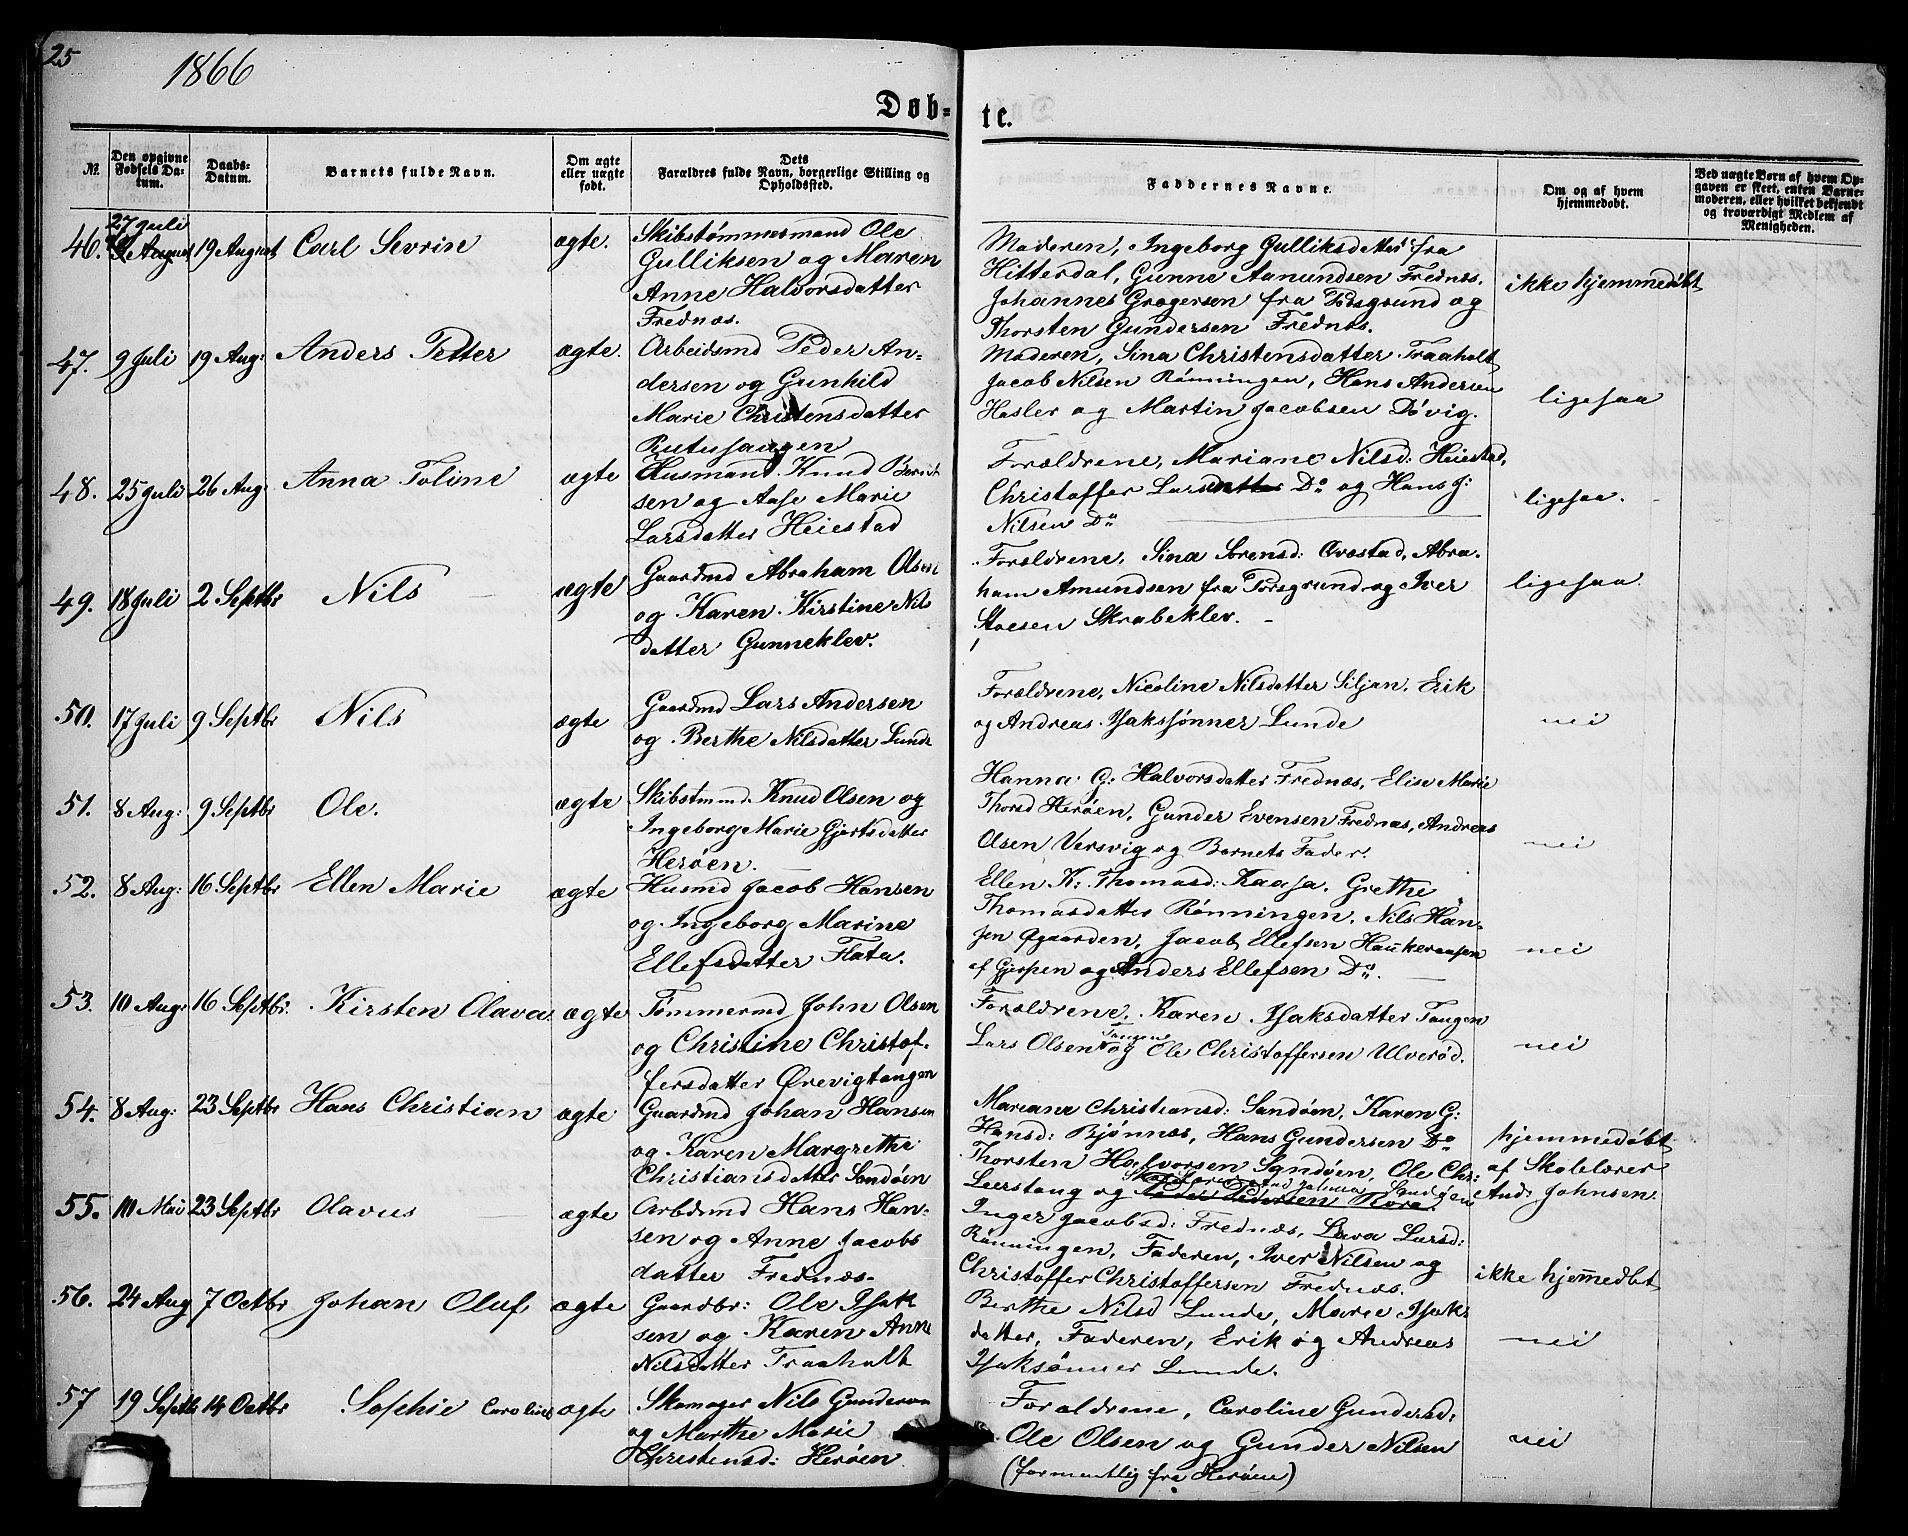 25
1866
Døbte.
No.
Den opgivne Fødsels Datum.
Daabs-Datum.
Barnets fulde Navn.
Om ægte eller uægte født.
Dets Forældres fulde Navn, borgerlige Stilling og Opholdssted.
Faddernes Navne.
Om og af hvem hjemmedøbt.
Ved uægte Børn af hvem Opgaven er skeet, enten Barnemoderen, eller hvilket bekjendt og troværdigt Medlem af Menigheden.
46. 27 Juli 19 August Carl Sevrin ægte.
Skibstømmermand Ole
Gulliksen og Maren
Anne Halvorsdatter
Frednæs.
Moderen, Ingeborg Gulliksdatter fra
Hitterdal, Gunne Aamundsen Frednæs.
Johannes Gregersen fra Porsgrund og
Thorsten Gundersen Frednæs.
ikke hjemmedøbt
47. 9 Juli 19 Aug: Anders Petter ægte.
Arbeidsmd Peder An-
dersen og Gunhild
Marie Christensdatter
Moderen, Sina Christensdatter Traaholt
Jacob Nilsen Rønningen, Hans Andersen
Hasler og Martin Jacobsen Døvig.
ligesaa
48. 25 Juli 26 Aug: Anna Toline ægte
Husmand Knud Bernt
sen og Aase Marie
Larsdatter Heiestad
Forældrene, Mariane Nilsd: Heiestad,
Christoffer Larsdatter Do og Hans J:
Nilsen Do
ligesaa.
49. 18 Juli 2 Septbr Nils ægte
Gaardmd Abraham Olsen
og Karen Kirstine Nils
datter Gunneklev.
Forældrene, Sina Sørensd: Qvæstad, Abra-
ham Amundsen fra Porsgrund og Iver
Stoesen Skrabeklev.
ligesaa.
50. 17 Juli 9 Septbr Nils ægte
Gaardmd Lars Andersen
og Berthe Nilsdatter Lunde
Forældrene, Nicoline Nilsdatter Siljan, Erik
og Andreas Isakssønner Lunde
nei
51. 8 Aug: 9 Septbr Ole. ægte
Skibstmmd. Knud Olsen og
Ingeborg Marie Gjertsdatter
Herøen.
Hanna G: Halvorsdatter Frednæs, Elise Marie
Thorsd Herøen, Gunder Evensen Frednæs, Andreas
Olsen Versvig og Barnets Fader.
nei
52. 8 Aug: 16 Septbr Ellen Marie ægte
Husmd Jacob Hansen
og Ingeborg Marine
Ellefsdatter Flata.
Ellen K: Thomasd: Kaasa, Grethe
Thomasdatter Rønningen, Nils Han-
sen Øgaarden, Jacob Ellefsen Haukeraasen
af Gjerpen og Anders Ellefsen Do.
nei
53. 10 Aug: 16 Septbr. Kirsten Olava ægte
Tømmermd John Olsen
og Christine Christof-
fersdatter Ørevigtangen
Forældrene. Karen Isaksdatter Tangen
Lars Olsen Tangen og Ole Christoffersen Ulverød.
nei
54. 8 Aug: 23 Septbr Hans Christian ægte
Gaardmd Johan Hansen
og Karen Margrethe
Christiansdatter Sandøen
Mariane Christiansd: Sandøen, Karen G:
Hansd: Bjønnæs, Hans Gundersen Do
Thorsten Halvorsen Sandøen, Ole Chr:
Leerstang og Skolelærer And Johnsen
hjemmedøbt
af Skolelærer
And: Johnsen
55. 10 Mai 23 Septbr Olavus ægte
Arbdsmd Hans Han-
sen og Anne Jacobs
datter Frednæs.
Inger Jacobsd: Frednæs, Lava Larsd:
Rønningen, Faderen, Iver Nilsen og
Christoffer Christoffersen Frednæs.
ikke hjemmedbt
56. 24 Aug 7 Octbr Johan Oluf ægte
Gaardbr: Ole Isak
sen og Karen Anne
Nilsdatter Traaholt
Berthe Nilsd Lunde, Maree Isaks
datter, Faderen, Erik og Andreas
Isaksønner Lunde.
nei
57 19 Septb 14 Octbr Sophie Caroline ægte
Skomager Nils Gundersen
og Marthe Marie
Christensd: Herøen
Forældrene, Caroline Gundersd:
Ole Olsen og Gunder Nilsen
(formentlig fra Herøen)
nei